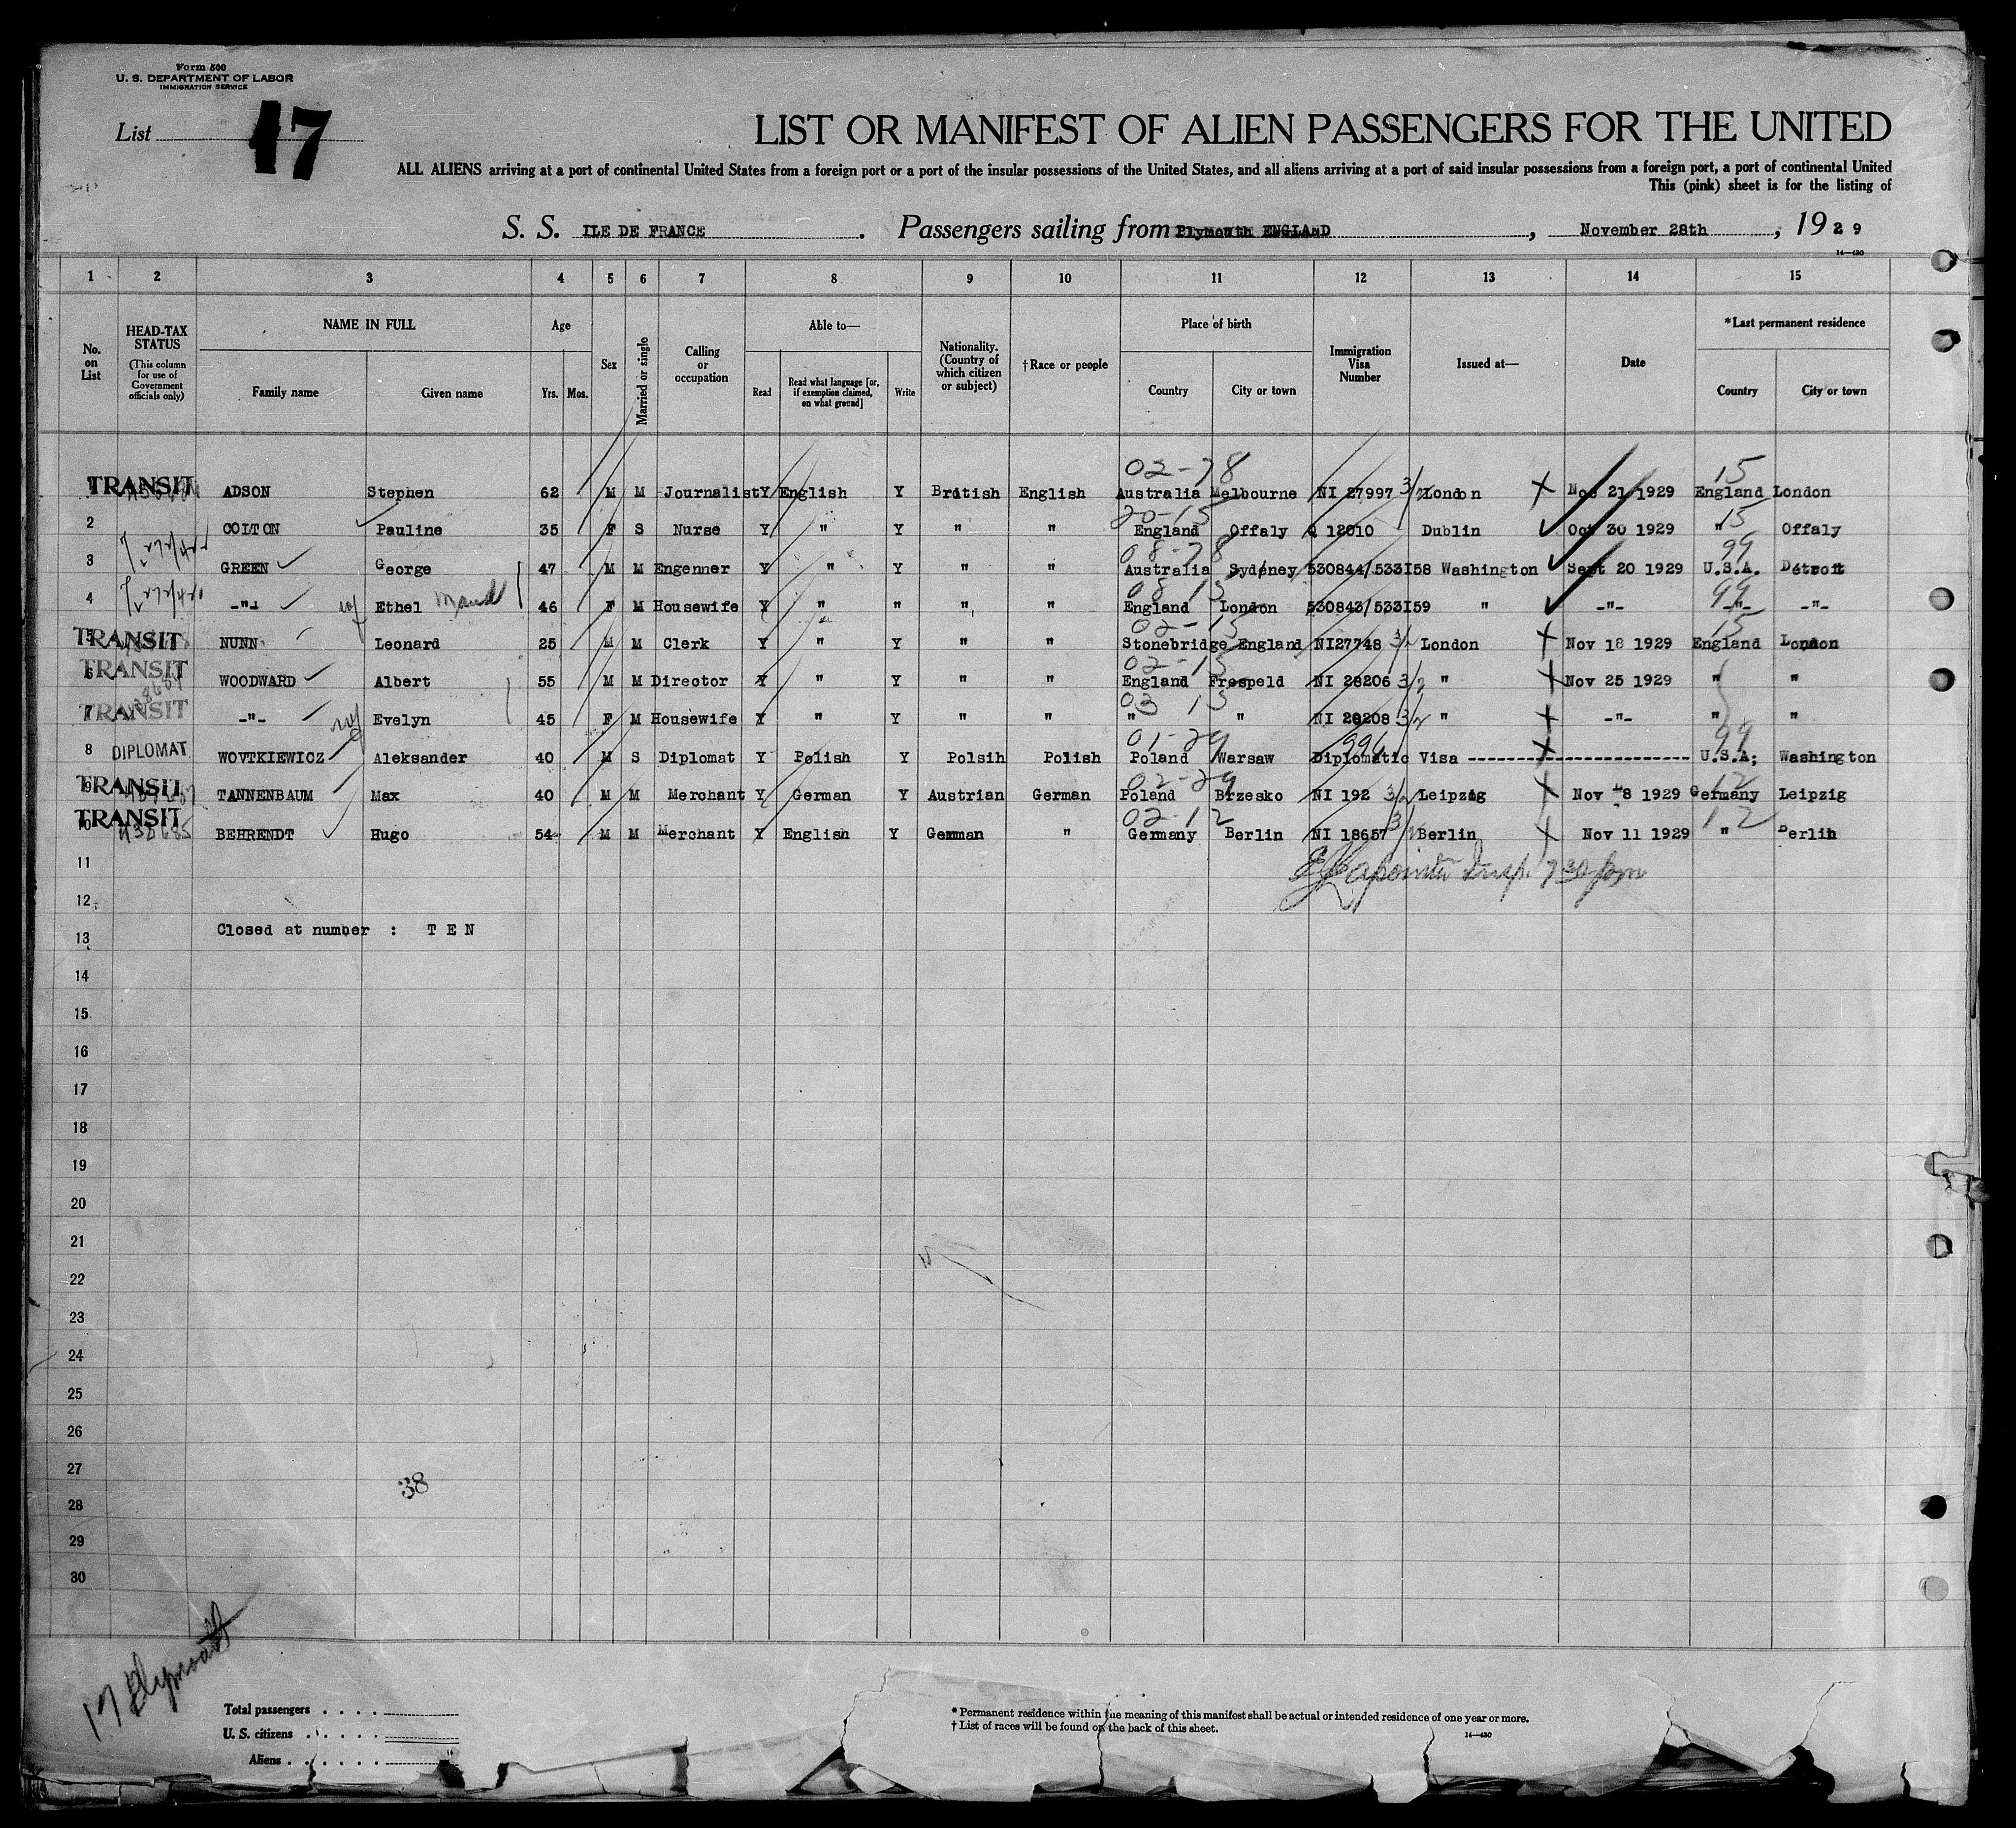 Form 500
U. S. DEPARTMENT OF LABOR
IMMIGRATION SERVICE
List 17
LIST OR MANIFEST OF ALIEN PASSENGERS FOR THE UNITED
ALL ALIENS arriving at a port of continental United States from a foreign port or a port of the insular possessions of the United States, and all aliens arriving at a port of said insular possessions from a foreign port, a port of continental United
This (pink) sheet is for the listing of
S. S. ILE DE FRANCE . Passengers sailing from Plymouth ENGLAND , November 28th , 19 29
14—430
1 2 3 4 5 6 7 8 9 10 11 12 13 14 15
No. on List
HEAD-TAX STATUS
(This column for use of Government officials only)
NAME IN FULL
Family name Given name
Age
Yrs. Mos.
Sex
Married or single
Calling or occupation
Able to—
Read Read what language [or, if exemption claimed, on what ground] Write
Nationality. (Country of which citizen or subject)
†Race or people
Place of birth
Country City or town
Immigration Visa Number
Issued at—
Date
*Last permanent residence
Country City or town
02-78 15
1 TRANSIT ADSON Stephen 62 M M Journalist Y English Y British English Australia Melbourne NI 27997 3/2 London X Nov 21 1929 England London
20-15 15
2 COLTON Pauline 35 F S Nurse Y " Y " " England Offaly Q 12010 Dublin Oct 30 1929 " Offaly
08-78 99
3 GREEN George 47 M M Engenner Y " Y " " Australia Sydney 530844/533I58 Washington Sept 20 1929 U.S.A. Détroit
08 15 99
4 -"- wf Ethel Maud 46 F M Housewife Y " " " " England London 530843/533I59 " -"- -"- -"-
02-15 15
5 TRANSIT NUNN Leonard 25 M M Clerk Y " Y " " Stonebridge England NI27748 3/2 London X Nov 18 1929 England London
02-15
6 TRANSIT WOODWARD Albert 55 M M Director Y " Y " " England NI 28206 3/2 " X Nov 25 1929 " "
03 15
7 TRANSIT -"- wf Evelyn 45 F M Housewife Y " Y " " " " NI 28208 3/2 " X -"- " "
01-29 996 99
8 DIPLOMAT WOVTKIEWICZ Aleksander 40 M S Diplomat Y Polish Y Polsih Polish Poland Warsaw Diplomatic Visa ---------------------- U.S.A; Washington
02-29 12
9 TRANSIT TANNENBAUM Max 40 M M Merchant Y German Y Austrian German Poland Brzesko NI 192 3/2 Leipzig X Nov 8 1929 Germany Leipzig
02-12 12
10 TRANSIT BEHRENDT Hugo 54 M M Merchant Y English Y German " Germany Berlin NI 18657 3/2 Berlin X Nov 11 1929 " Berlin
11 Insp. 7 30 pm
12
Closed at number : T E N
13
14
15
16
17
18
19
20
21
22
23
24
25
26
27
38
28
29
30
17 Plymouth
Total passengers . . . .
U. S. citizens . . . . .
Aliens . . . . . .
* Permanent residence within the meaning of this manifest shall be actual or intended residence of one year or more.
† List of races will be found on the back of this sheet.
14—430